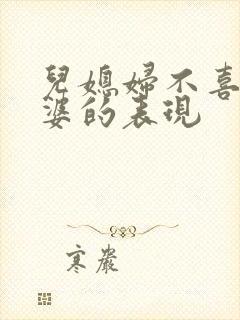 兒媳婦不喜
婆的表現
寒巖